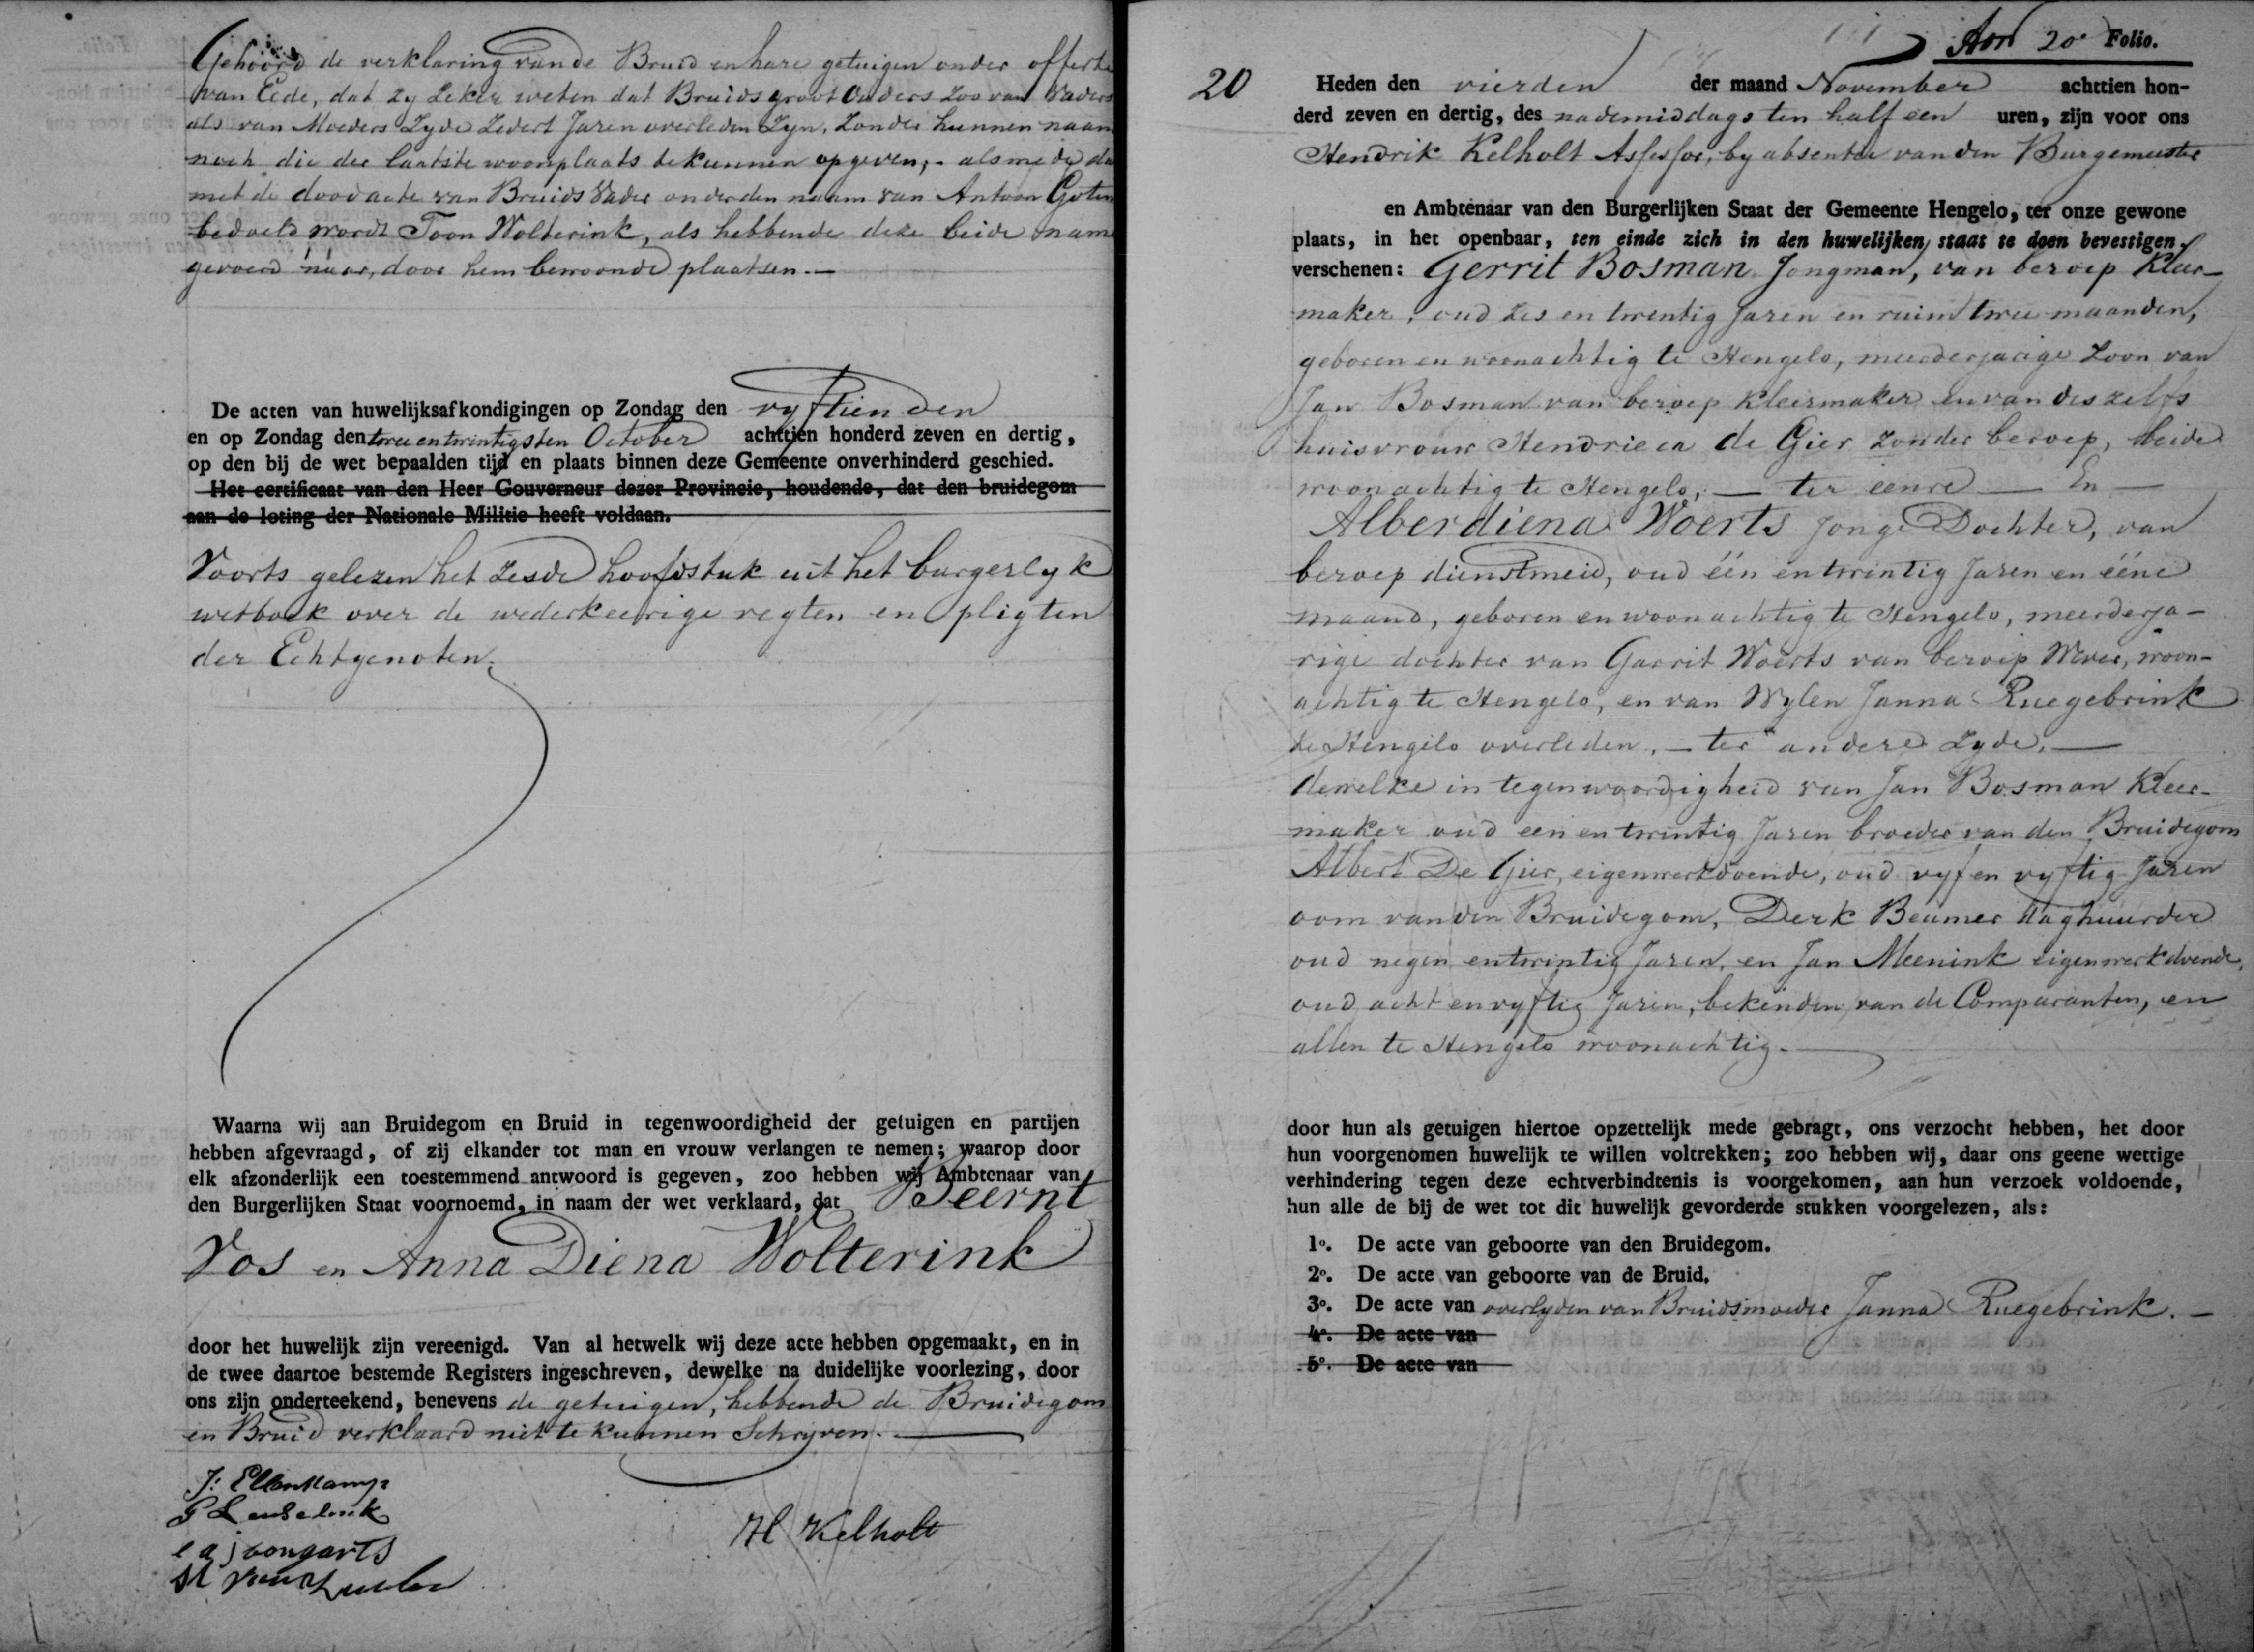 Gehoord de verklaring van de Bruid en hare getuigen onder offerte
van Eede, dat zy zeker weten dat Bruids groot Ouders zoo van Vaders
als van Moeders Zyde Zedert Jaren overleden Zyn, zonder hunnen naam
noch die der laatste woonplaats te kunnen opgeven; - alsmede da
met de doodacte van Bruids Vader onder den naam van Antoon Goten
bedoeld wordt Toon Wolterink, als hebbende deze beide name
gevoerd naar, door hem bewoonde plaatsen.—
De acten van huwelijksafkondigingen op Zondag den vyftienden
en op Zondag den twee en twintigsten October achttien honderd zeven en dertig,
op den bij de wet bepaalden tijd en plaats binnen deze Gemeente onverhinderd geschied.
Het certificaat van den Heer Gouverneur dezer Provincie, houdende, dat den bruidegom
aan de loting der Nationale Militie heeft voldaan.
Voorts gelezen het zesde hoofdstuk uit het burgerlyk
wetboek over de wederkeerige regten en pligten
der Echtgenoten.
Waarna wij aan Bruidegom en Bruid in tegenwoordigheid der getuigen en partijen
hebben afgevraagd, of zij elkander tot man en vrouw verlangen te nemen; waarop door
elk afzonderlijk een toestemmend antwoord is gegeven, zoo hebben wij Ambtenaar van
den Burgerlijken Staat voornoemd, in naam der wet verklaard, dat Beernt
Vos en Anna Diena Wolterink
door het huwelijk zijn vereenigd. Van al hetwelk wij deze acte hebben opgemaakt, en in
de twee daartoe bestemde Registers ingeschreven, dewelke na duidelijke voorlezing, door
ons zijn onderteekend, benevens de getuigen, hebbende de Bruidegom
en Bruid verklaard niet te kunnen Schryven.—
J: Ellenkamp
e a j bongarts
H Kelholt
20e Folio.
20
Heden den vierden der maand November achttien hon-
derd zeven en dertig, des nademiddags ten half een uren, zijn voor ons
Hendrik Kelholt Assessor, by absentie van den Burgemeester
en Ambtenaar van den Burgerlijken Staat der Gemeente Hengelo, ter onze gewone
plaats, in het openbaar, ten einde zich in den huwelijken staat te doen bevestigen,
verschenen: Gerrit Bosman Jongman, van beroep Kleer-
maker, oud zes en twentig Jaren en ruim twee maanden,
geboren en woonachtig te Hengelo, meerderjarige Zoon van
Jan Bosman van beroep kleermaker en van deszelfs
huisvrouw Hendrieca de Gier zonder beroep, beide
woonachtig te Hengelo, — ter eenre — En —
Alberdiena Woerts jonge Dochter, van
beroep dienstmeid, oud één en twintig Jaren en ééne
maand, geboren en woonachtig te Hengelo, meerderja-
rige dochter van Garrit Woerts van beroep Wever, woon-
achtig te Hengelo, en van Wylen Janna Ruegebrink
te Hengelo overleden, — ter andere Zyde. —
dewelke in tegenwoordigheid van Jan Bosman Kleer-
maker oud een en twintig Jaren broeder van den Bruidegom
Albert De Gier, eigenwerkdoende, oud vyf en vyftig Jaren
oom van den Bruidegom, Derk Beumer daghuurder
oud negen en twintig Jaren, en Jan Meenink eigenwerkdoende,
oud acht en vyftig Jaren, bekenden van de Comparanten, en
allen te Hengelo woonachtig.—
door hun als getuigen hiertoe opzettelijk mede gebragt, ons verzocht hebben, het door
hun voorgenomen huwelijk te willen voltrekken; zoo hebben wij, daar ons geene wettige
verhindering tegen deze echtverbindtenis is voorgekomen, aan hun verzoek voldoende,
hun alle de bij de wet tot dit huwelijk gevorderde stukken voorgelezen, als:
1o. De acte van geboorte van den Bruidegom.
2o. De acte van geboorte van de Bruid.
3o. De acte van overlyden van Bruidsmoeder Janna Ruegebrink.—
4o. De acte van
5o. De acte van